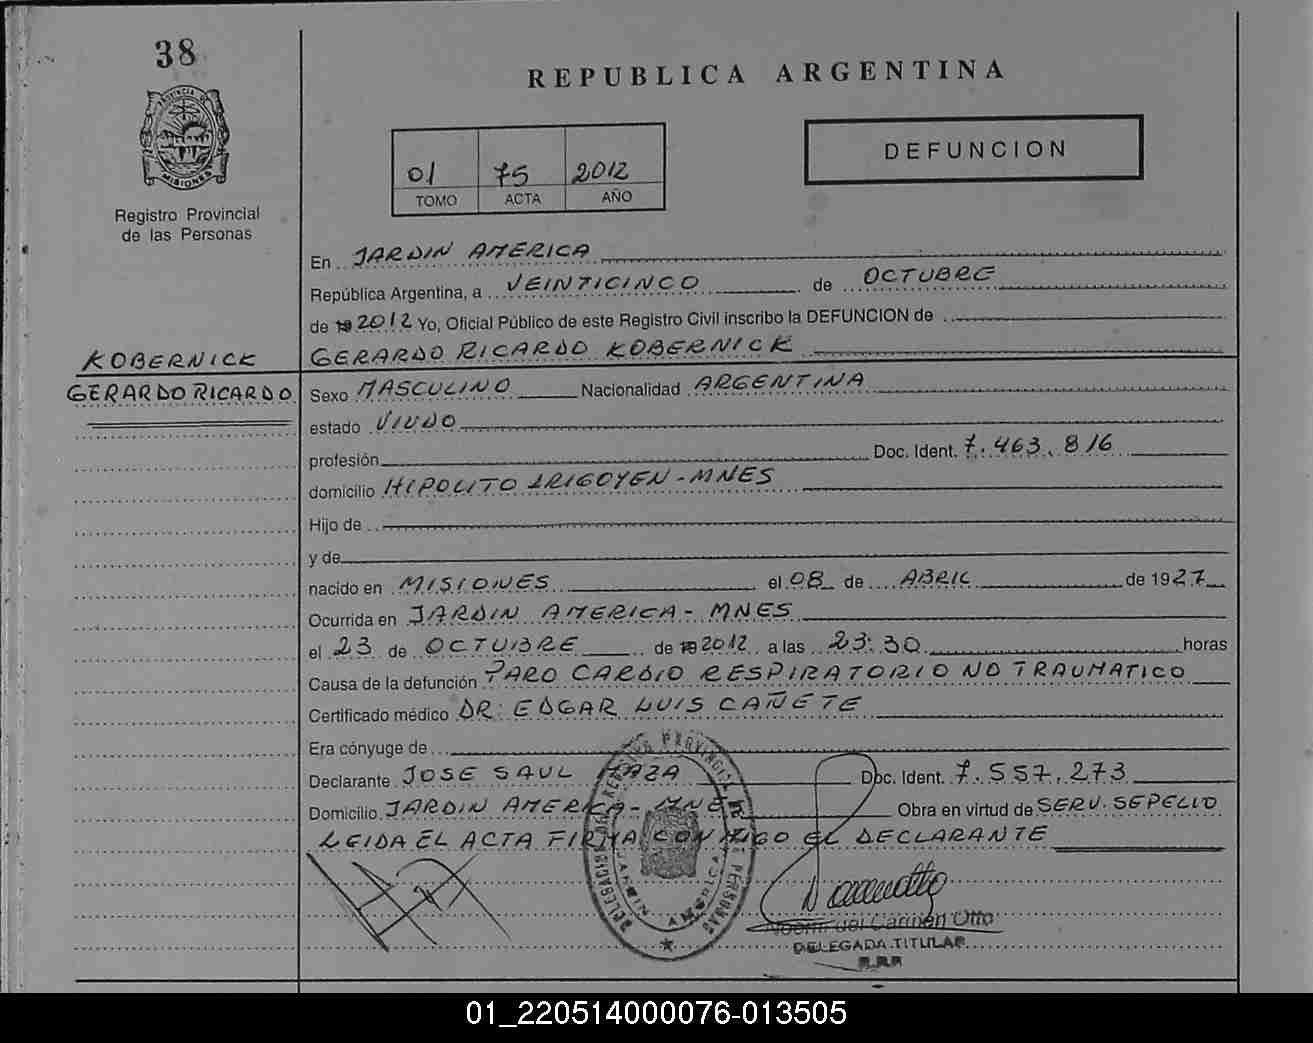 38
REPUBLICA ARGENTINA
PROVINCIA DE
MISIONES
Registro Provincial
de las Personas
01 75 2012
TOMO ACTA AÑO
DEFUNCION
En JARDIN AMERICA
República Argentina, a VEINTICINCO de OCTUBRE
de 19 2012 Yo, Oficial Público de este Registro Civil inscribo la DEFUNCION de
KOBERNICK
GERARDO RICARDO
GERARDO RICARDO KOBERNICK
Sexo MASCULINO Nacionalidad ARGENTINA
estado VIUDO
profesión Doc. Ident. 7.463.816
domicilio HIPOLITO IRIGOYEN - MNES
Hijo de
y de
nacido en MISIONES el 08 de ABRIL de 1927
Ocurrida en JARDIN AMERICA - MNES
el 23 de OCTUBRE de 19 2012 a las 23:30 horas
Causa de la defunción PARO CARDIO RESPIRATORIO NO TRAUMATICO
Certificado médico DR: EDGAR LUIS CAÑETE
Era cónyuge de
Declarante JOSE SAUL MAZA Doc. Ident. 7.557.273
Domicilio JARDIN AMERICA - MNES Obra en virtud de SERV. SEPELIO
LEIDA EL ACTA FIRMA CONMIGO EL DECLARANTE
JARDIN AMERICA
Noemi del Carmen Otto
DELEGADA TITULAR
R.P.P
01_220514000076-013505